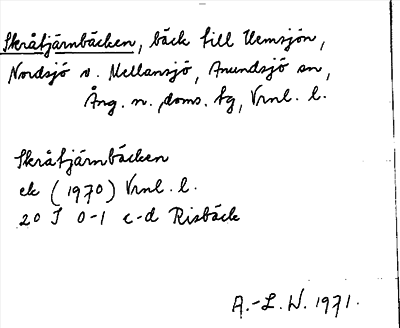 Skråtjärnbäcken, bäck till Hemsjön,
Nordsjö o. Mellansjö, Anundsjö sn,
Ång. n. doms. tg, Vrnl. l.
Skråtjärnbäcken
ek (1970) Vrnl. l.
20 J 0-1 c-d Risbäck
A.-L. W. 1971.